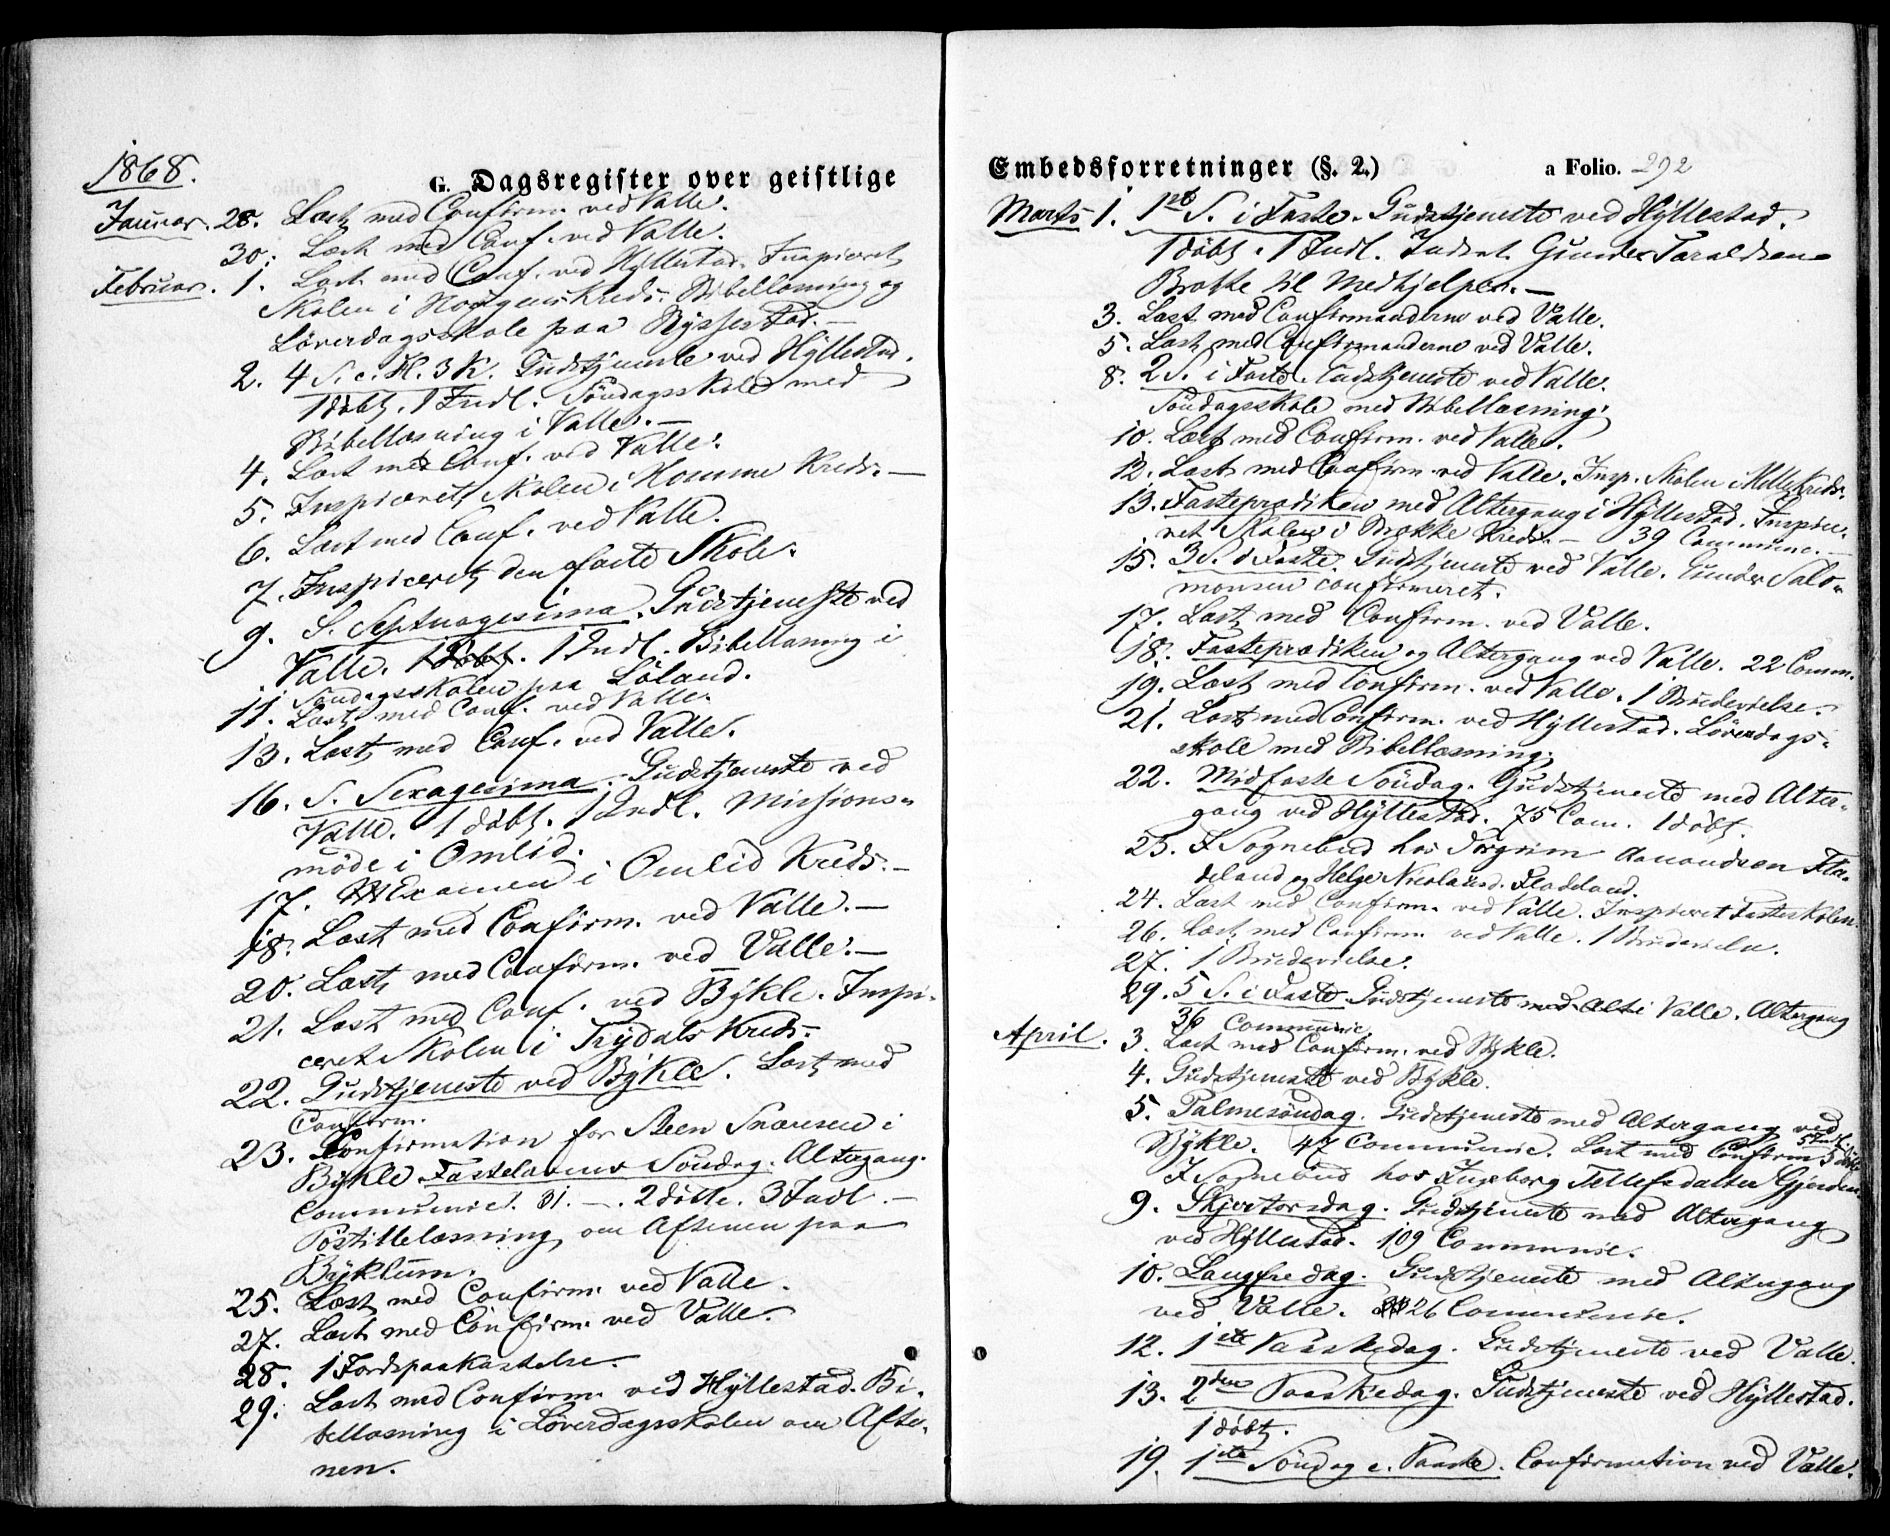 1868.
G. Dagsregister over geistlige
Januar. 28. Læst med Confirm. ved Valle.
30. Læst med Conf. ved Valle.
Februar. 1. Læst med Conf. ved Hyllestad. Inspiceret
Skolen i Kreds. Bibellæsning og
Løverdagsskole paa Rysstad.—
2. 4 S. e. H. 3 K. Gudstjeneste ved Hyllestad.
1 døbt. 1 Indl. Søndagsskole med
Bibellæsning i Valle.—
4. Læst med Conf. ved Valle.
5. Inspiceret Skolen i Homme Kreds.—
6. Læst med Conf. ved Valle.
7. Inspiceret den faste Skole.
9. S. Septuagesima. Gudstjeneste ved
Valle. 1 døbt. 1 Indl. Bibellæsning i
Søndagsskolen paa Løland.
11. Læst med Conf. ved Valle.
13. Læst med Conf. ved Valle.
16. S. Sexagesima. Gudstjeneste ved
Valle. 1 døbt. 1 Indl. Missions-
møde i Omlid.
17. Examen i Omlid Kreds.—
18. Læst med Confirm. ved Valle.—
20. Læst med Confirm. ved Valle.—
21. Læst med Conf. ved Bykle. Inspi-
ceret Skolen i Trydals Kreds.
22. Gudstjeneste ved Bykle. Læst med
Confirm.
23. Confirmation for Steen Snaresen i
Bykle. Fastelavens Søndag. Altergang.
Communic. 31.—. 2 døbte. 3 Indl.—
Postillelæsning om Aftenen paa
Byklum.
25. Læst med Confirm. ved Valle.
27. Læst med Confirm. ved Valle.
28. 1 Jordspaakastelse.
29. Læst med Confirm. ved Hyllestad. Bi-
bellæsning i Løverdagsskolen om Afte-
nen.
Embedsforretninger (§. 2.) a Folio. 292
Marts 1. 1ste S. i Faste. Gudstjeneste ved Hyllestad.
1 døbt. 1 Indl. Indsat Gunder Taraldsen
Brokke til Medhjelper.—
3. Læst med Confirmanderne ved Valle.
5. Læst med Confirmanderne ved Valle.
8. 2 S. i Faste. Gudstjeneste ved Valle.
Søndagsskole med Bibellæsning.
10. Læst med Confirm. ved Valle.
12. Læst med Confirm. ved Valle. Insp. Skolen i Kreds.
13. Fasteprædiken med Altergang i Hyllestad. Inspice-
ret Skolen i Brokke Kreds.— 39 Commune.—
15. 3 S. i Faste. Gudstjeneste ved Valle. Gunder Salo-
monsen confirmeret.
17. Læst med Confirm. ved Valle.
18. Fasteprædiken og Altergang ved Valle. 22 Comm.
19. Læst med Confirm. ved Valle. 1 Brudevielse.
21. Læst med Confirm. ved Hyllestad. Løverdags-
skole med Bibellæsning.
22. Midfaste Søndag. Gudstjeneste med Alter-
gang ved Hyllestad. 75 Com. 1 døbt.
23. I Sognebud hos Torgrim Aamundsen Fla-
deland og Helge Nicolaisd. Fladeland.
24. Læst med Confirm. ved Valle. Inspiceret Fasteskolen
26. Læst med Confirm. ved Valle. 1 Brudevielse.
27. 1 Brudevielse.
29. 5 S. i Faste Gudstjeneste med Alt i Valle. Altergang
36 Communic.
April. 3. Læst med Confirm. ved Bykle.
4. Gudstjeneste ved Bykle.
5. Palmesøndag. Gudstjeneste med Altergang ved
Bykle. 47 Communic. Læst med Confirm. 5 Indl. 5 døbte
I Sognebud hos Ingeborg Tellefsdatter Gjerden
9. Skjertorsdag. Gudstjeneste med Altergang
ved Hyllestad. 109 Communic.
10. Langfredag. Gudstjeneste med Altergang
ved Valle. 26 Communic.
12. 1ste Paaskedag. Gudstjeneste ved Valle.
13. 2den Paaskedag. Gudstjeneste ved Hyllestad.
1 døbt.
19. 1ste Søndag e. Paaske. Confirmation ved Valle.